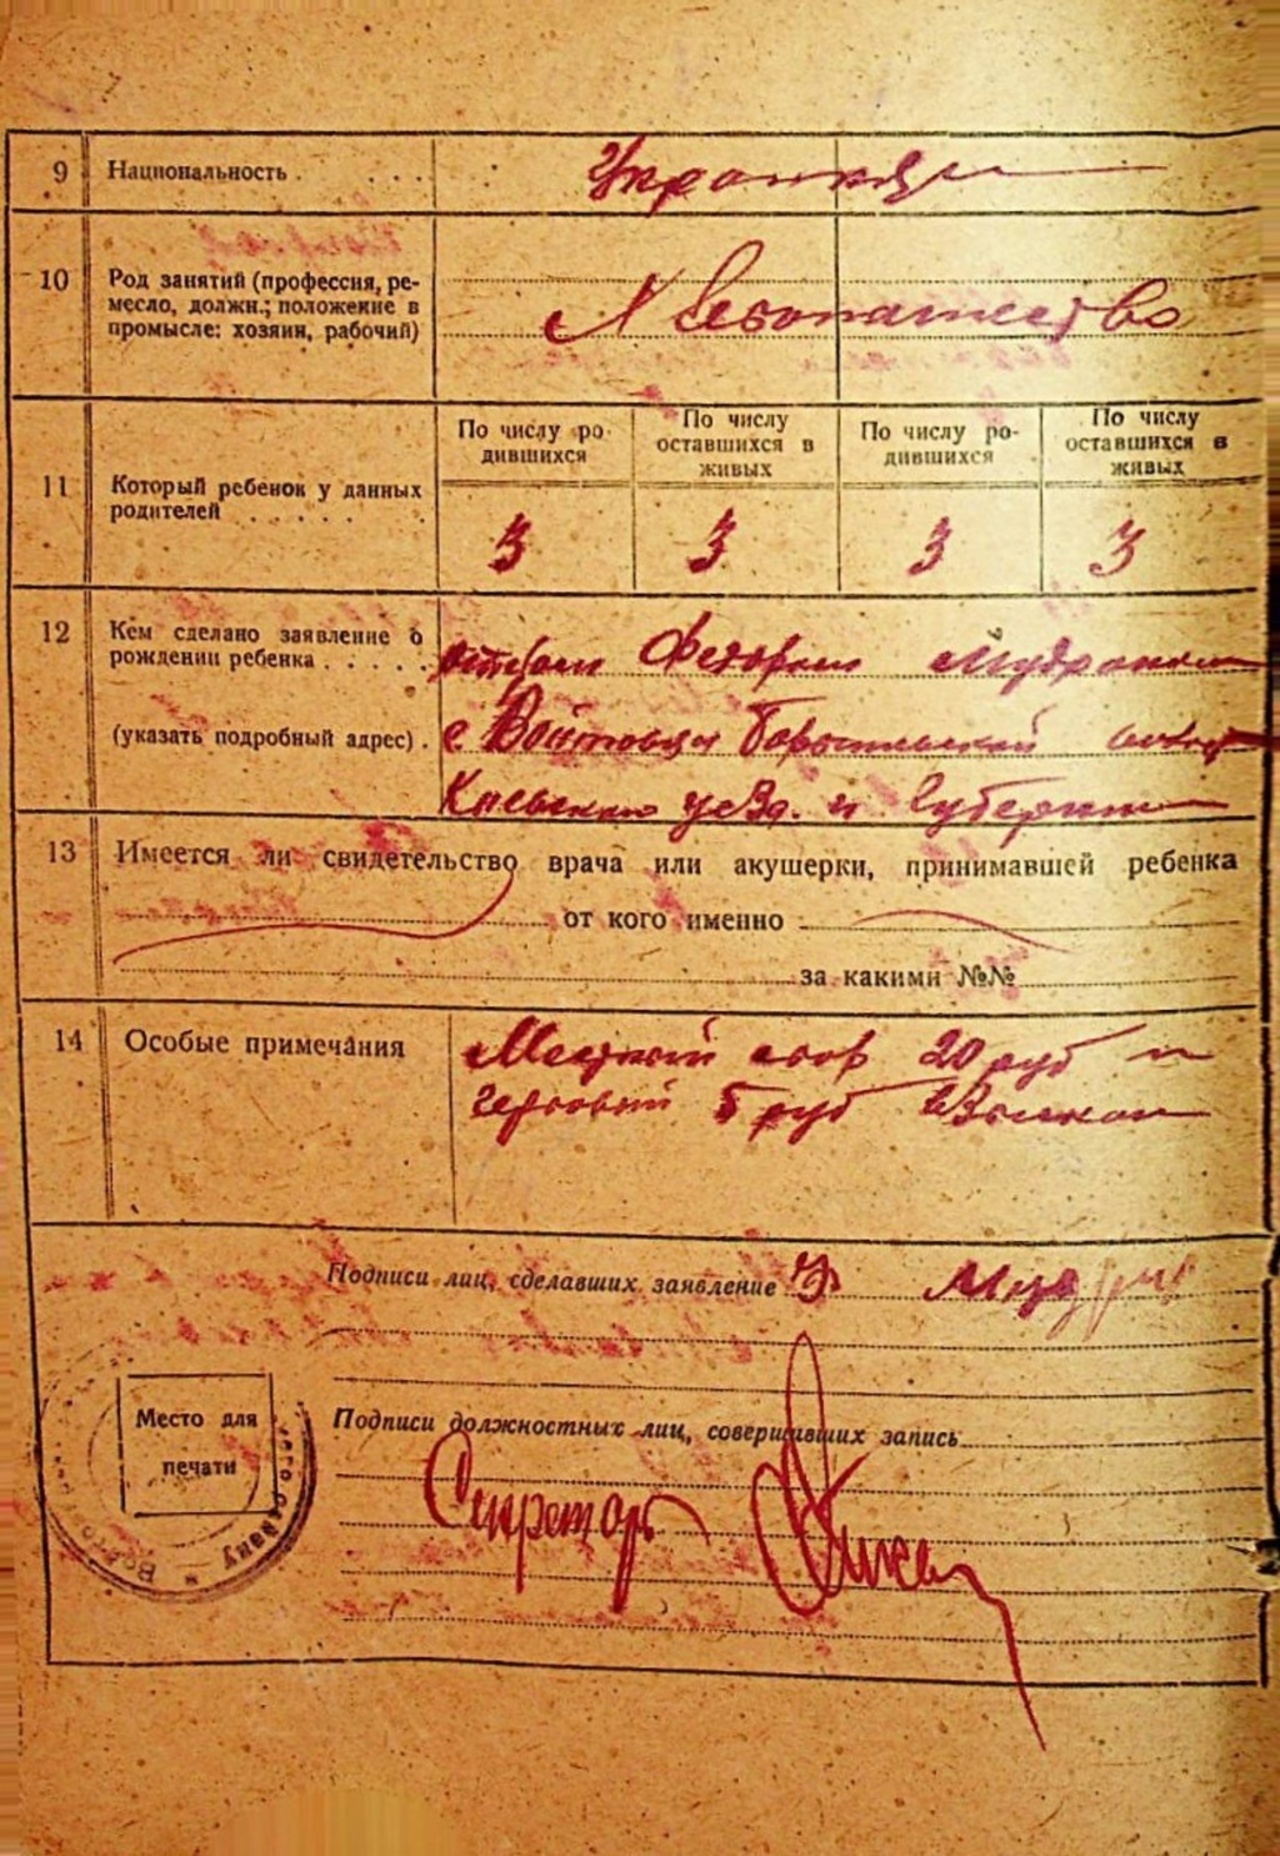 9 Национальность . . . . Украинцы
10 Род занятий (профессия, ре-
месло, должн.; положение в
промысле: хозяин, рабочий)
Хлебопашество
По числу ро-
дившихся
По числу
оставшихся в
живых
По числу ро-
дившихся
По числу
оставшихся в
живых
11 Который ребенок у данных
родителей . . . . . .
3 3 3 3
12 Кем сделано заявление о
рождении ребенка . . . . .
отцом Федором
(указать подробный адрес) .
с Войтовцы Борыспольской волос
Киевского уезд. и Губернии
13 Имеется ли свидетельство врача или акушерки, принимавшей ребенка
от кого именно
за какими №№
14 Особые примечания
Местный сбор 20 руб и
гербовый 5 руб взыскан
Подписи лиц, сделавших заявление
Место для
печати
Подписи должностных лиц, совершивших запись
Секретарь